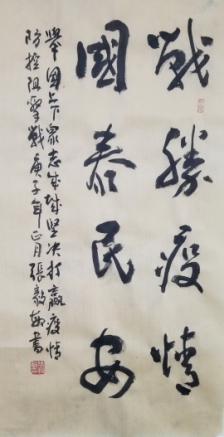 戰勝疫情
國泰民安
舉国上下衆志成城坚决打赢疫情
防控阻擊戰庚子年正月張毅敏書